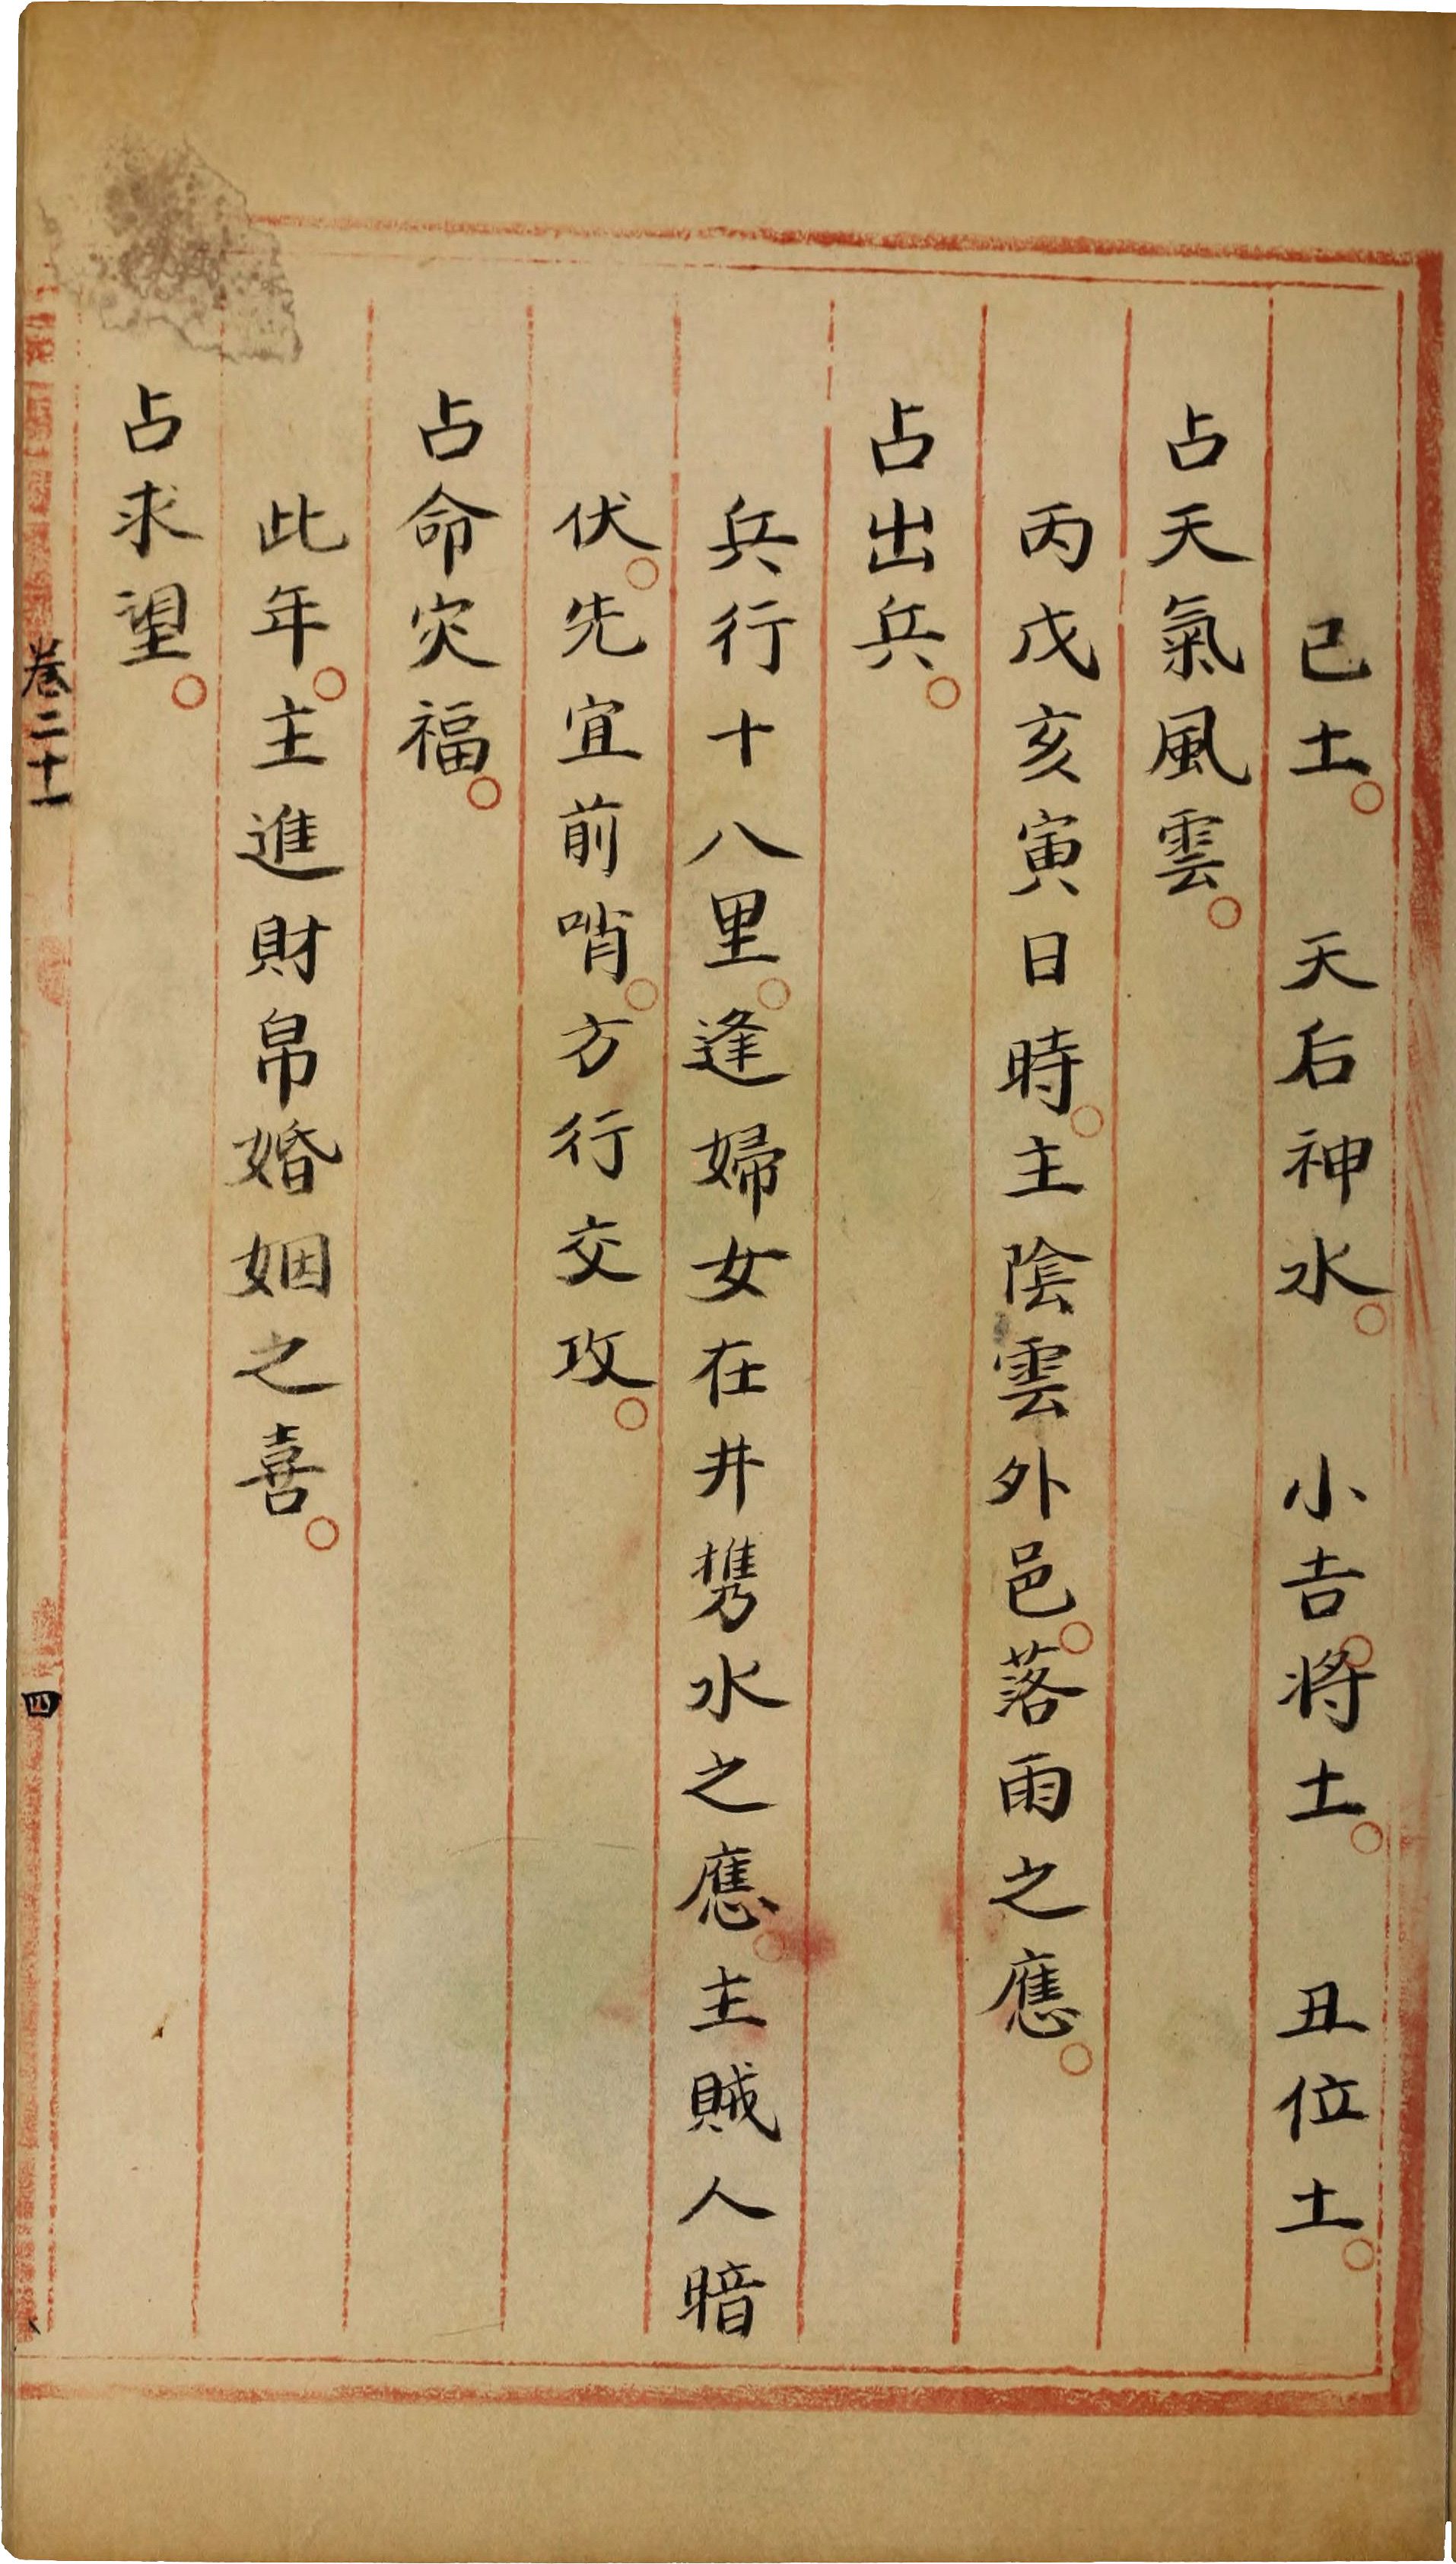 己土。　天后神水。　小吉。將土。　丑位土。
占天氣風雲。
丙戊亥寅日時。主陰雲外邑。落雨之應。
占出兵。
兵行十八里。逢婦女在井携水之應。主賊人暗
伏。先宜前哨。方行交攻。
占命灾福。
此年。主進財帛婚姻之喜。
占求望。
卷二十一
四